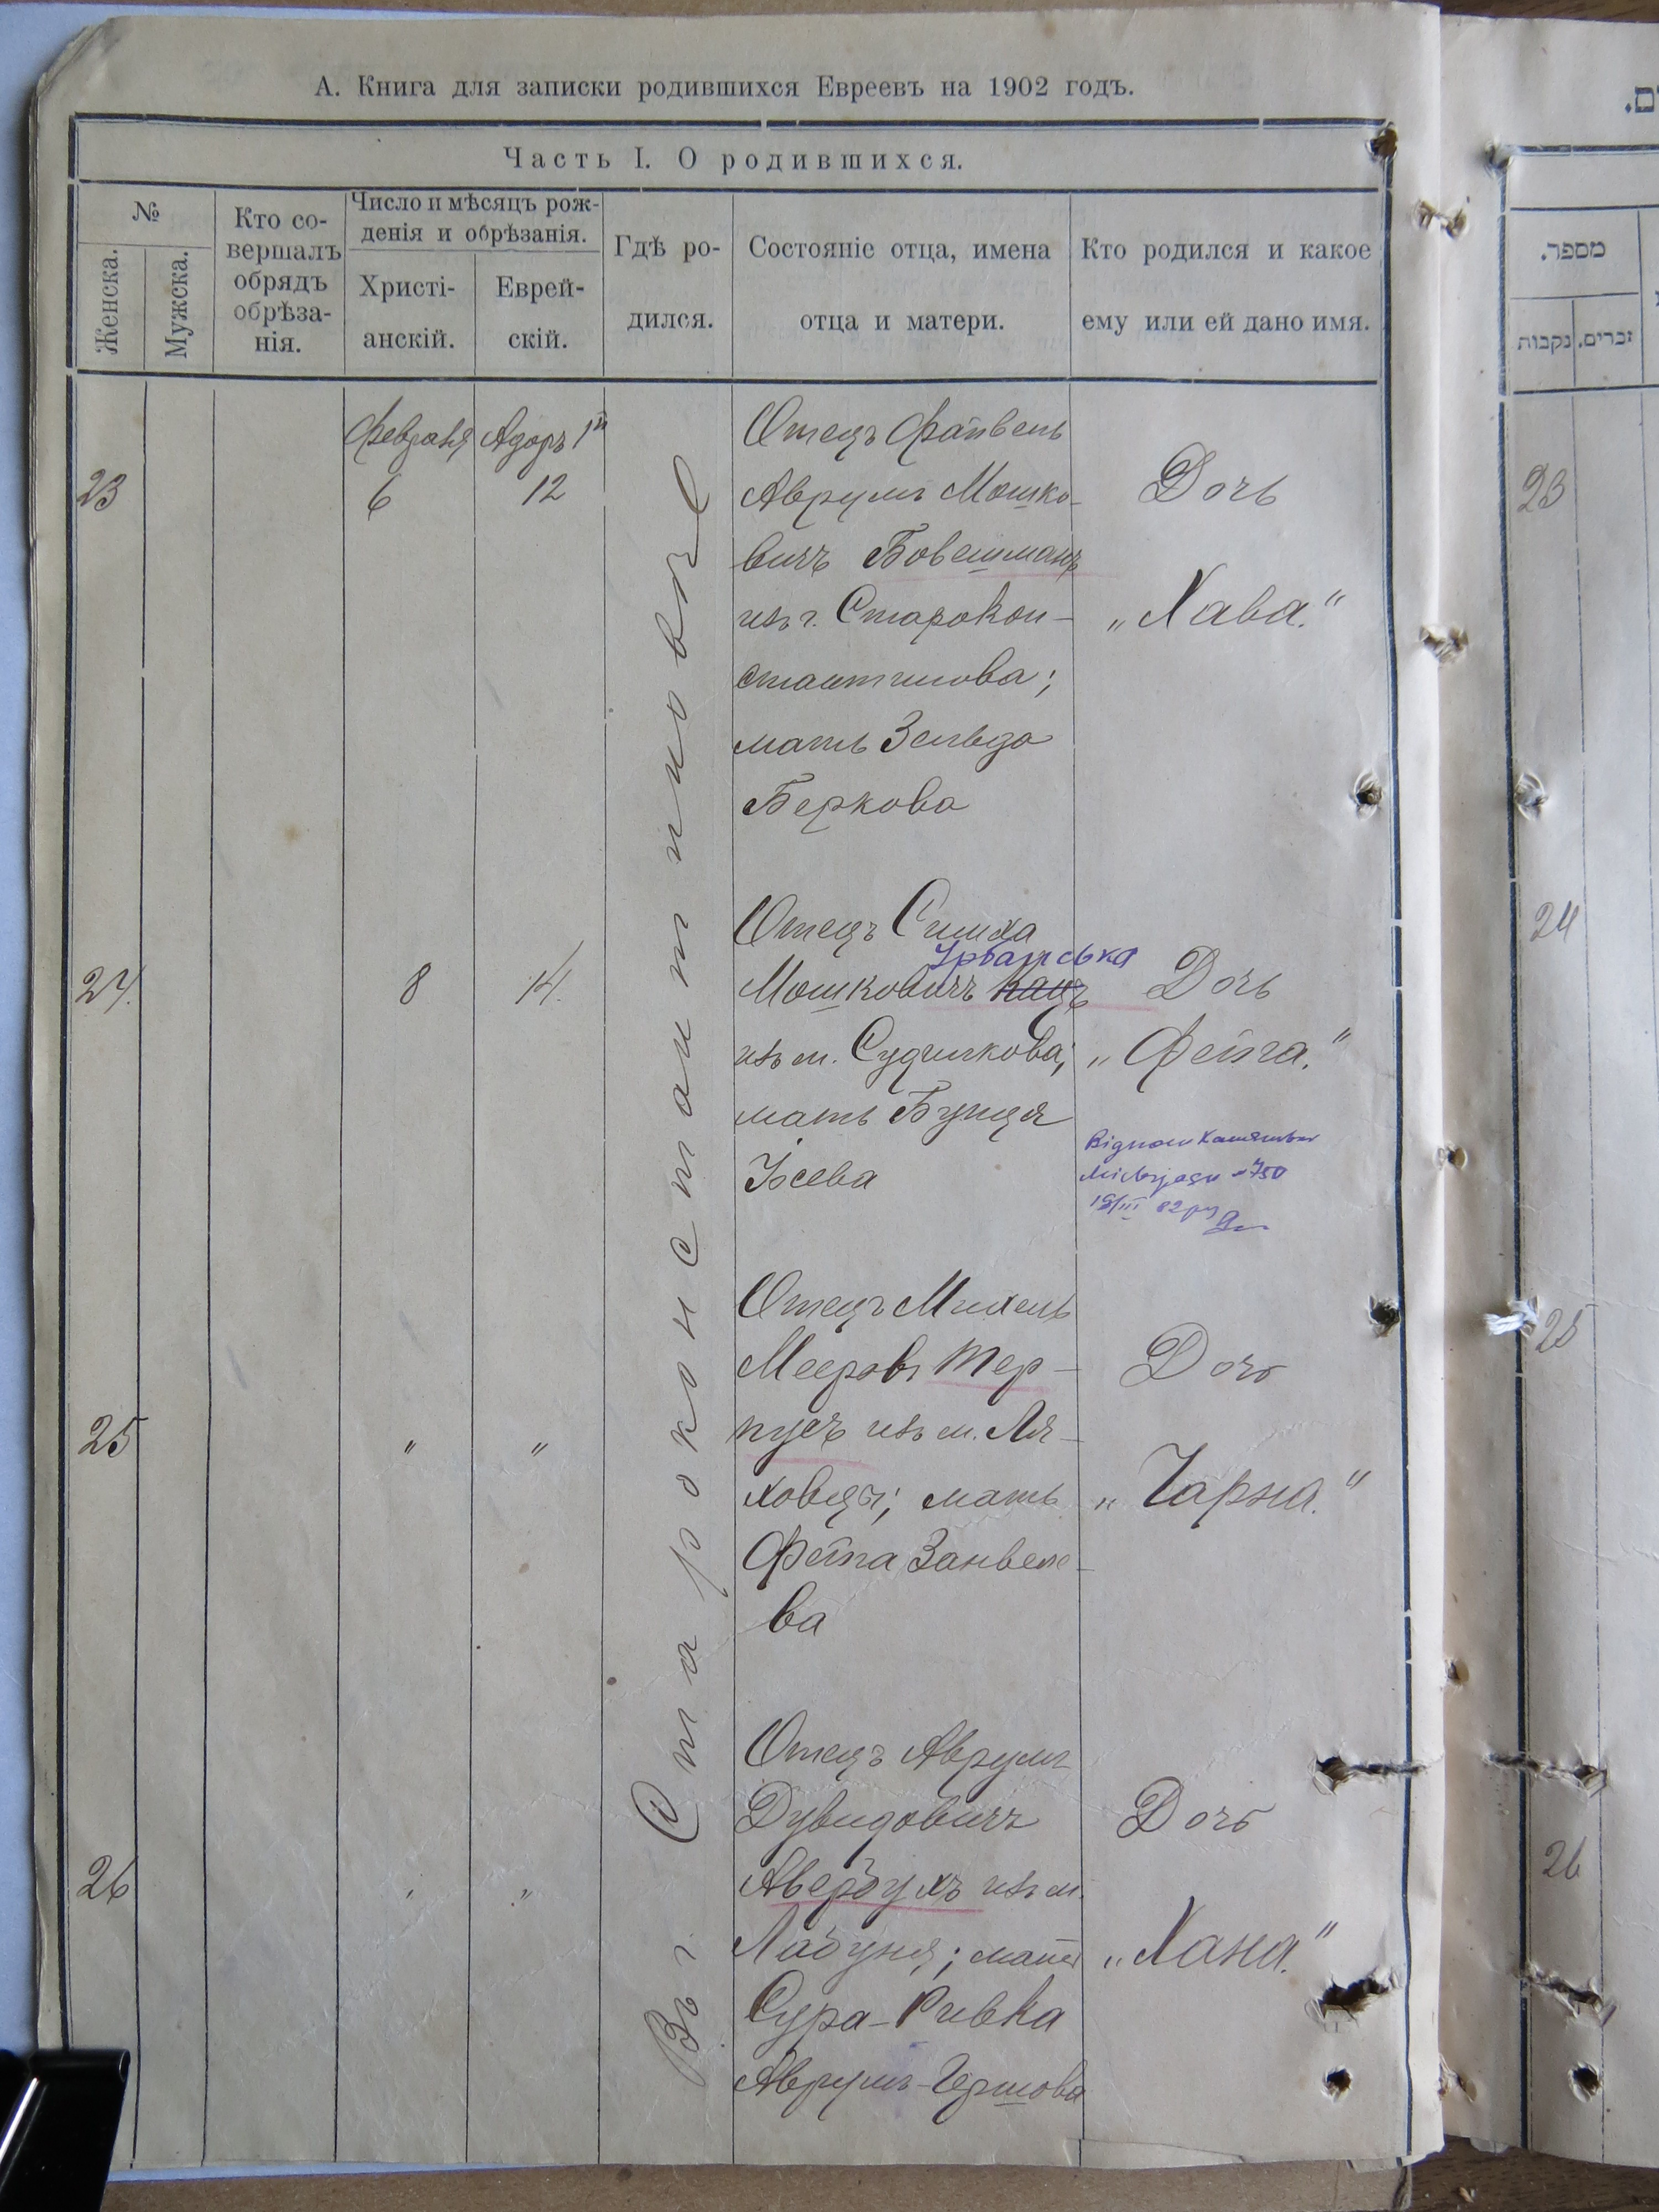 А. Книга для записки родившихся Евреевъ на 1902 годъ.
Часть I. О родившихся.
№
Женска.
Мужска.
Кто со-
вершалъ
обрядъ
обрѣза-
нія.
Число и мѣсяцъ рож-
денія и обрѣзанія.
Христі-
анскій.
Еврей-
скій.
Гдѣ ро-
дился.
Состояніе отца, имена
отца и матери.
Кто родился и какое
ему или ей дано имя.
Въ г. Староконстантиновѣ
23
Февраля
6
Адаръ 1й
12
Отецъ Файвель
Аврумъ Мошко-
вичъ Бовешманъ
изъ г. Старокон-
стантинова;
мать Зельда
Беркова
Дочь
„Хава."
24.
8
14.
Отецъ Симха
Урбатська
Мошковичъ Кацъ
изъ м. Судилкова;
мать Бунця
Іосева
Дочь
„Фейга."
750
15/III 82
25
"
"
Отецъ Михель
Мееровъ Тер-
пусъ изъ м. Ля-
ховцы; мать
Фейга Занвеле-
ва
Дочь
„Чарна."
26
"
"
Отецъ Аврумъ
Дувидовичъ
Авербухъ изъ м.
Лабуня; мать
Сура-Ривка
Аврумъ-Гершова
Дочь
„Хана."
מספר.
נקבות
זכרים.
23
24
25
26